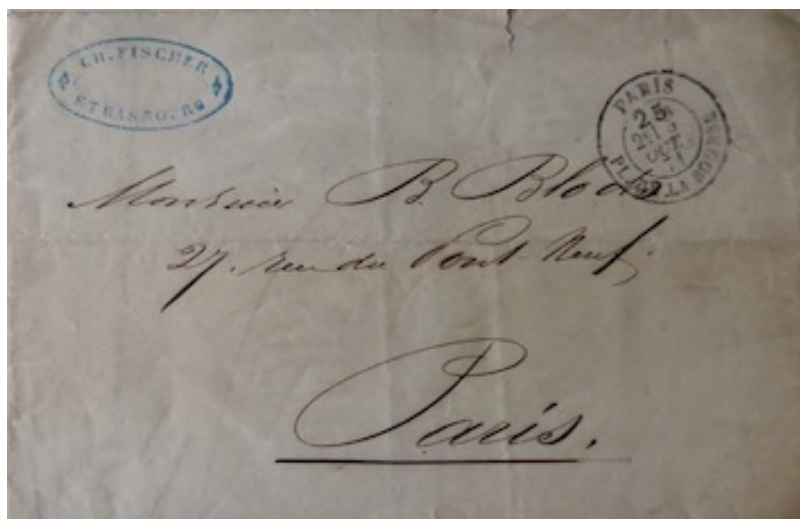 CH. FISCHER
STRASBOURG
PARIS
25
PL. DE LA BOURSE
Monsieur B. Bloch
27. rue du Pont-Neuf.
Paris.